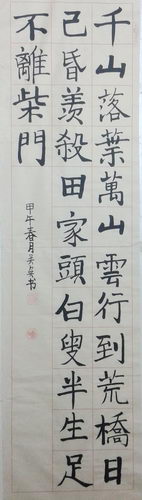 千山落葉萬山雲行到荒橋日
已昏羨殺田家頭白叟半生足
不離柴門
甲午春月吴奂书